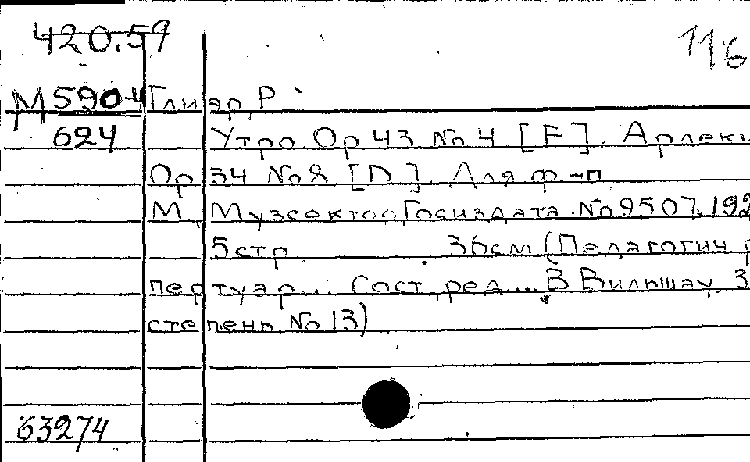 420.59
116
М 590-4 Глиэр, Р.
624 Утро. Ор 43 No 4 [F]. Арлеки
Ор 34 No 8 [D]. Для ф-п
М, Музсектор Госиздата. No 9507, 192
5 стр 36 см (Педагогич р
пертуар... Сост. ред... В Вильшау. 3
степень No 13)
63274